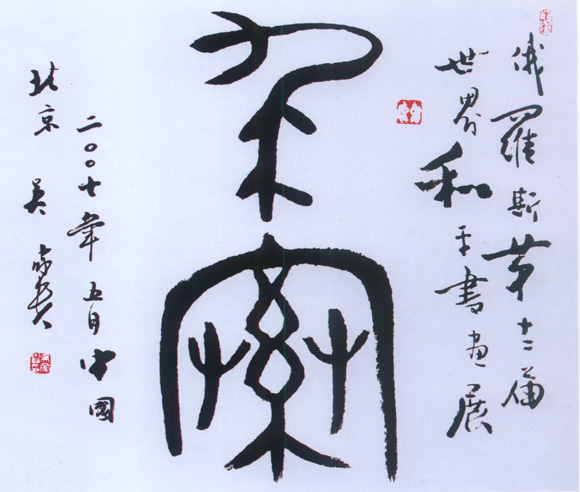 俄羅斯第十二
世界和平書画展
求索
二〇〇七年五月中國
北京 吴